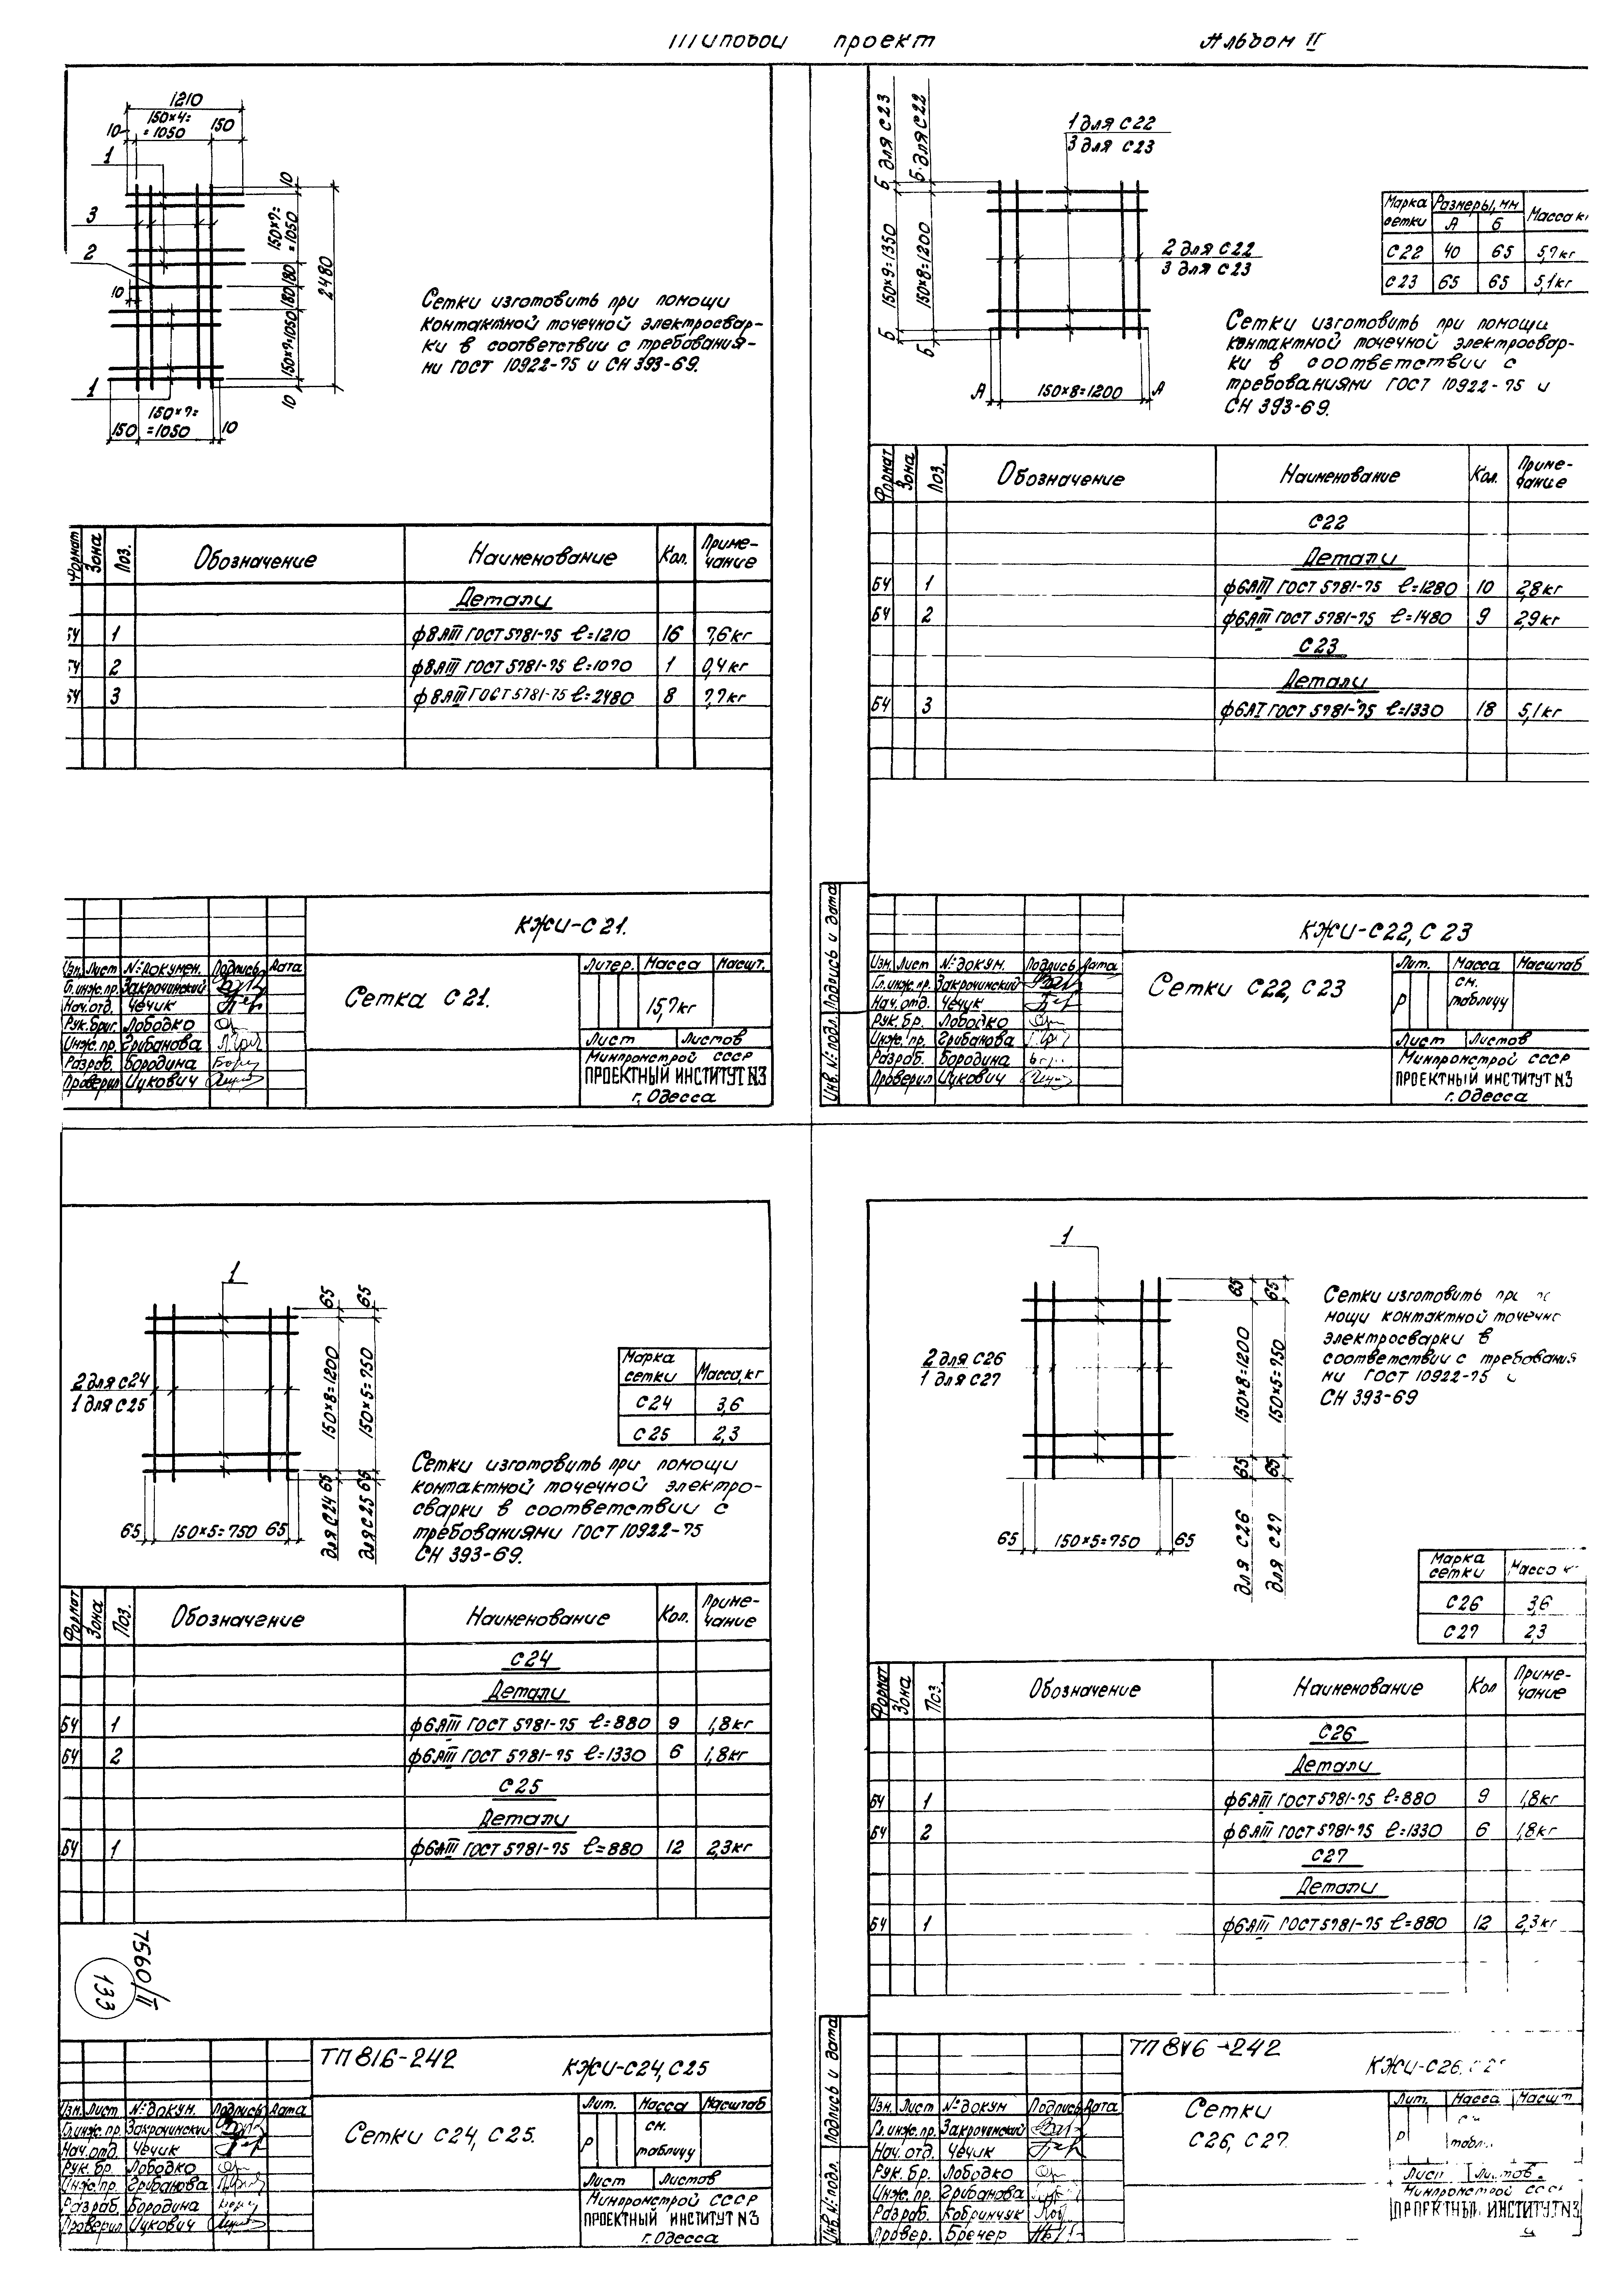 Типовой проект Альбом II
1210
150×4=
=1050
10
150
1
3
2
10
10
150×7=
=1050
180
180
150×7=1050
10
2480
1
150×7=
=1050
150
10
Сетки изготовить при помощи
контактной точечной электросвар-
ки в соответствии с требования-
ми ГОСТ 10922-75 и СН 393-69.
Формат Зона Поз. Обозначение Наименование Кол. Приме-
чание
Детали
БЧ 1 ф8АIII ГОСТ 5781-75 ℓ=1210 16 7,6кг
БЧ 2 ф8АIII ГОСТ 5781-75 ℓ=1070 1 0,4кг
БЧ 3 ф8АIII ГОСТ 5781-75 ℓ=2480 8 7,7кг
КЖИ-С21.
Изм. Лист №докумен. Подпись Дата
Гл.инж.пр. Закрочинский
Нач.отд. Чечик
Рук.бриг. Лободко
Инж.пр. Грибанова
Разраб. Бородина
Проверил Цукович
Сетка С21.
Литер. Масса Масшт.
15,7кг
Лист Листов
Минпромстрой СССР
ПРОЕКТНЫЙ ИНСТИТУТ №3
г. Одесса
Б для С23
Б для С22
150×9=1350
150×8=1200
Б
Б
1 для С22
3 для С23
2 для С22
3 для С23
А 150×8=1200 А
Марка
сетки Размеры, мм Масса кг
А Б
С22 40 65 5,7кг
С23 65 65 5,1кг
Сетки изготовить при помощи
контактной точечной электросвар-
ки в соответствии с
требованиями ГОСТ 10922-75 и
СН 393-69.
Формат Зона Поз. Обозначение Наименование Кол. Приме-
чание
С22
Детали
БЧ 1 ф6АIII ГОСТ 5781-75 ℓ=1280 10 2,8кг
БЧ 2 ф6АIII ГОСТ 5781-75 ℓ=1480 9 2,9кг
С23
Детали
БЧ 3 ф6АI ГОСТ 5781-75 ℓ=1330 18 5,1кг
Инв. № подл. Подпись и дата
КЖИ-С22, С23
Изм. Лист №докум. Подпись Дата
Гл.инж.пр. Закрочинский
Нач.отд. Чечик
Рук.бр. Лободко
Инж.пр. Грибанова
Разраб. Бородина
Проверил Цукович
Сетки С22, С23
Лит. Масса Масштаб
Р см.
таблицу
Лист Листов
Минпромстрой СССР
ПРОЕКТНЫЙ ИНСТИТУТ №3
г. Одесса
1
2 для С24
1 для С25
65
65
150×8=1200
150×5=750
65
65
для С24
для С25
65 150×5=750 65
Марка
сетки Масса, кг
С24 3,6
С25 2,3
Сетки изготовить при помощи
контактной точечной электро-
сварки в соответствии с
требованиями ГОСТ 10922-75
СН 393-69.
Формат Зона Поз. Обозначение Наименование Кол. Приме-
чание
С24
Детали
БЧ 1 ф6АIII ГОСТ 5781-75 ℓ=880 9 1,8кг
БЧ 2 ф6АIII ГОСТ 5781-75 ℓ=1330 6 1,8кг
С25
Детали
БЧ 1 ф6АIII ГОСТ 5781-75 ℓ=880 12 2,3кг
7560/II
133
ТП 816-242
КЖИ-С24, С25
Изм. Лист №докум. Подпись Дата
Гл.инж.пр. Закрочинский
Нач.отд. Чечик
Рук.бр. Лободко
Инж.пр. Грибанова
Разраб. Бородина
Проверил Цукович
Сетки С24, С25.
Лит. Масса Масштаб
Р см.
таблицу
Лист Листов
Минпромстрой СССР
ПРОЕКТНЫЙ ИНСТИТУТ №3
г. Одесса
1
2 для С26
1 для С27
65
65
150×8=1200
150×5=750
65
65
для С26
для С27
65 150×5=750 65
Сетки изготовить при по
мощи контактной точечно
электросварки в
соответствии с требования
ми ГОСТ 10922-75 и
СН 393-69
Марка
сетки Масса кг
С26 3,6
С27 2,3
Формат Зона Поз. Обозначение Наименование Кол Приме-
чание
С26
Детали
БЧ 1 ф6АIII ГОСТ 5781-75 ℓ=880 9 1,8кг
БЧ 2 ф6АIII ГОСТ 5781-75 ℓ=1330 6 1,8кг
С27
Детали
БЧ 1 ф6АIII ГОСТ 5781-75 ℓ=880 12 2,3кг
Инв. № подл. Подпись и дата
ТП 816-242
КЖИ-С26,
Изм. Лист №докум Подпись Дата
Гл.инж.пр. Закрочинский
Нач.отд. Чечик
Рук.бр. Лободко
Инж.пр. Грибанова
Разраб. Кобринчук
Провер. Бренер
Сетки
С26, С27.
Лит. Масса Масшт
Р
табл.
Лист Листов
Минпромстрой СССР
ПРОЕКТНЫЙ ИНСТИТУТ №3